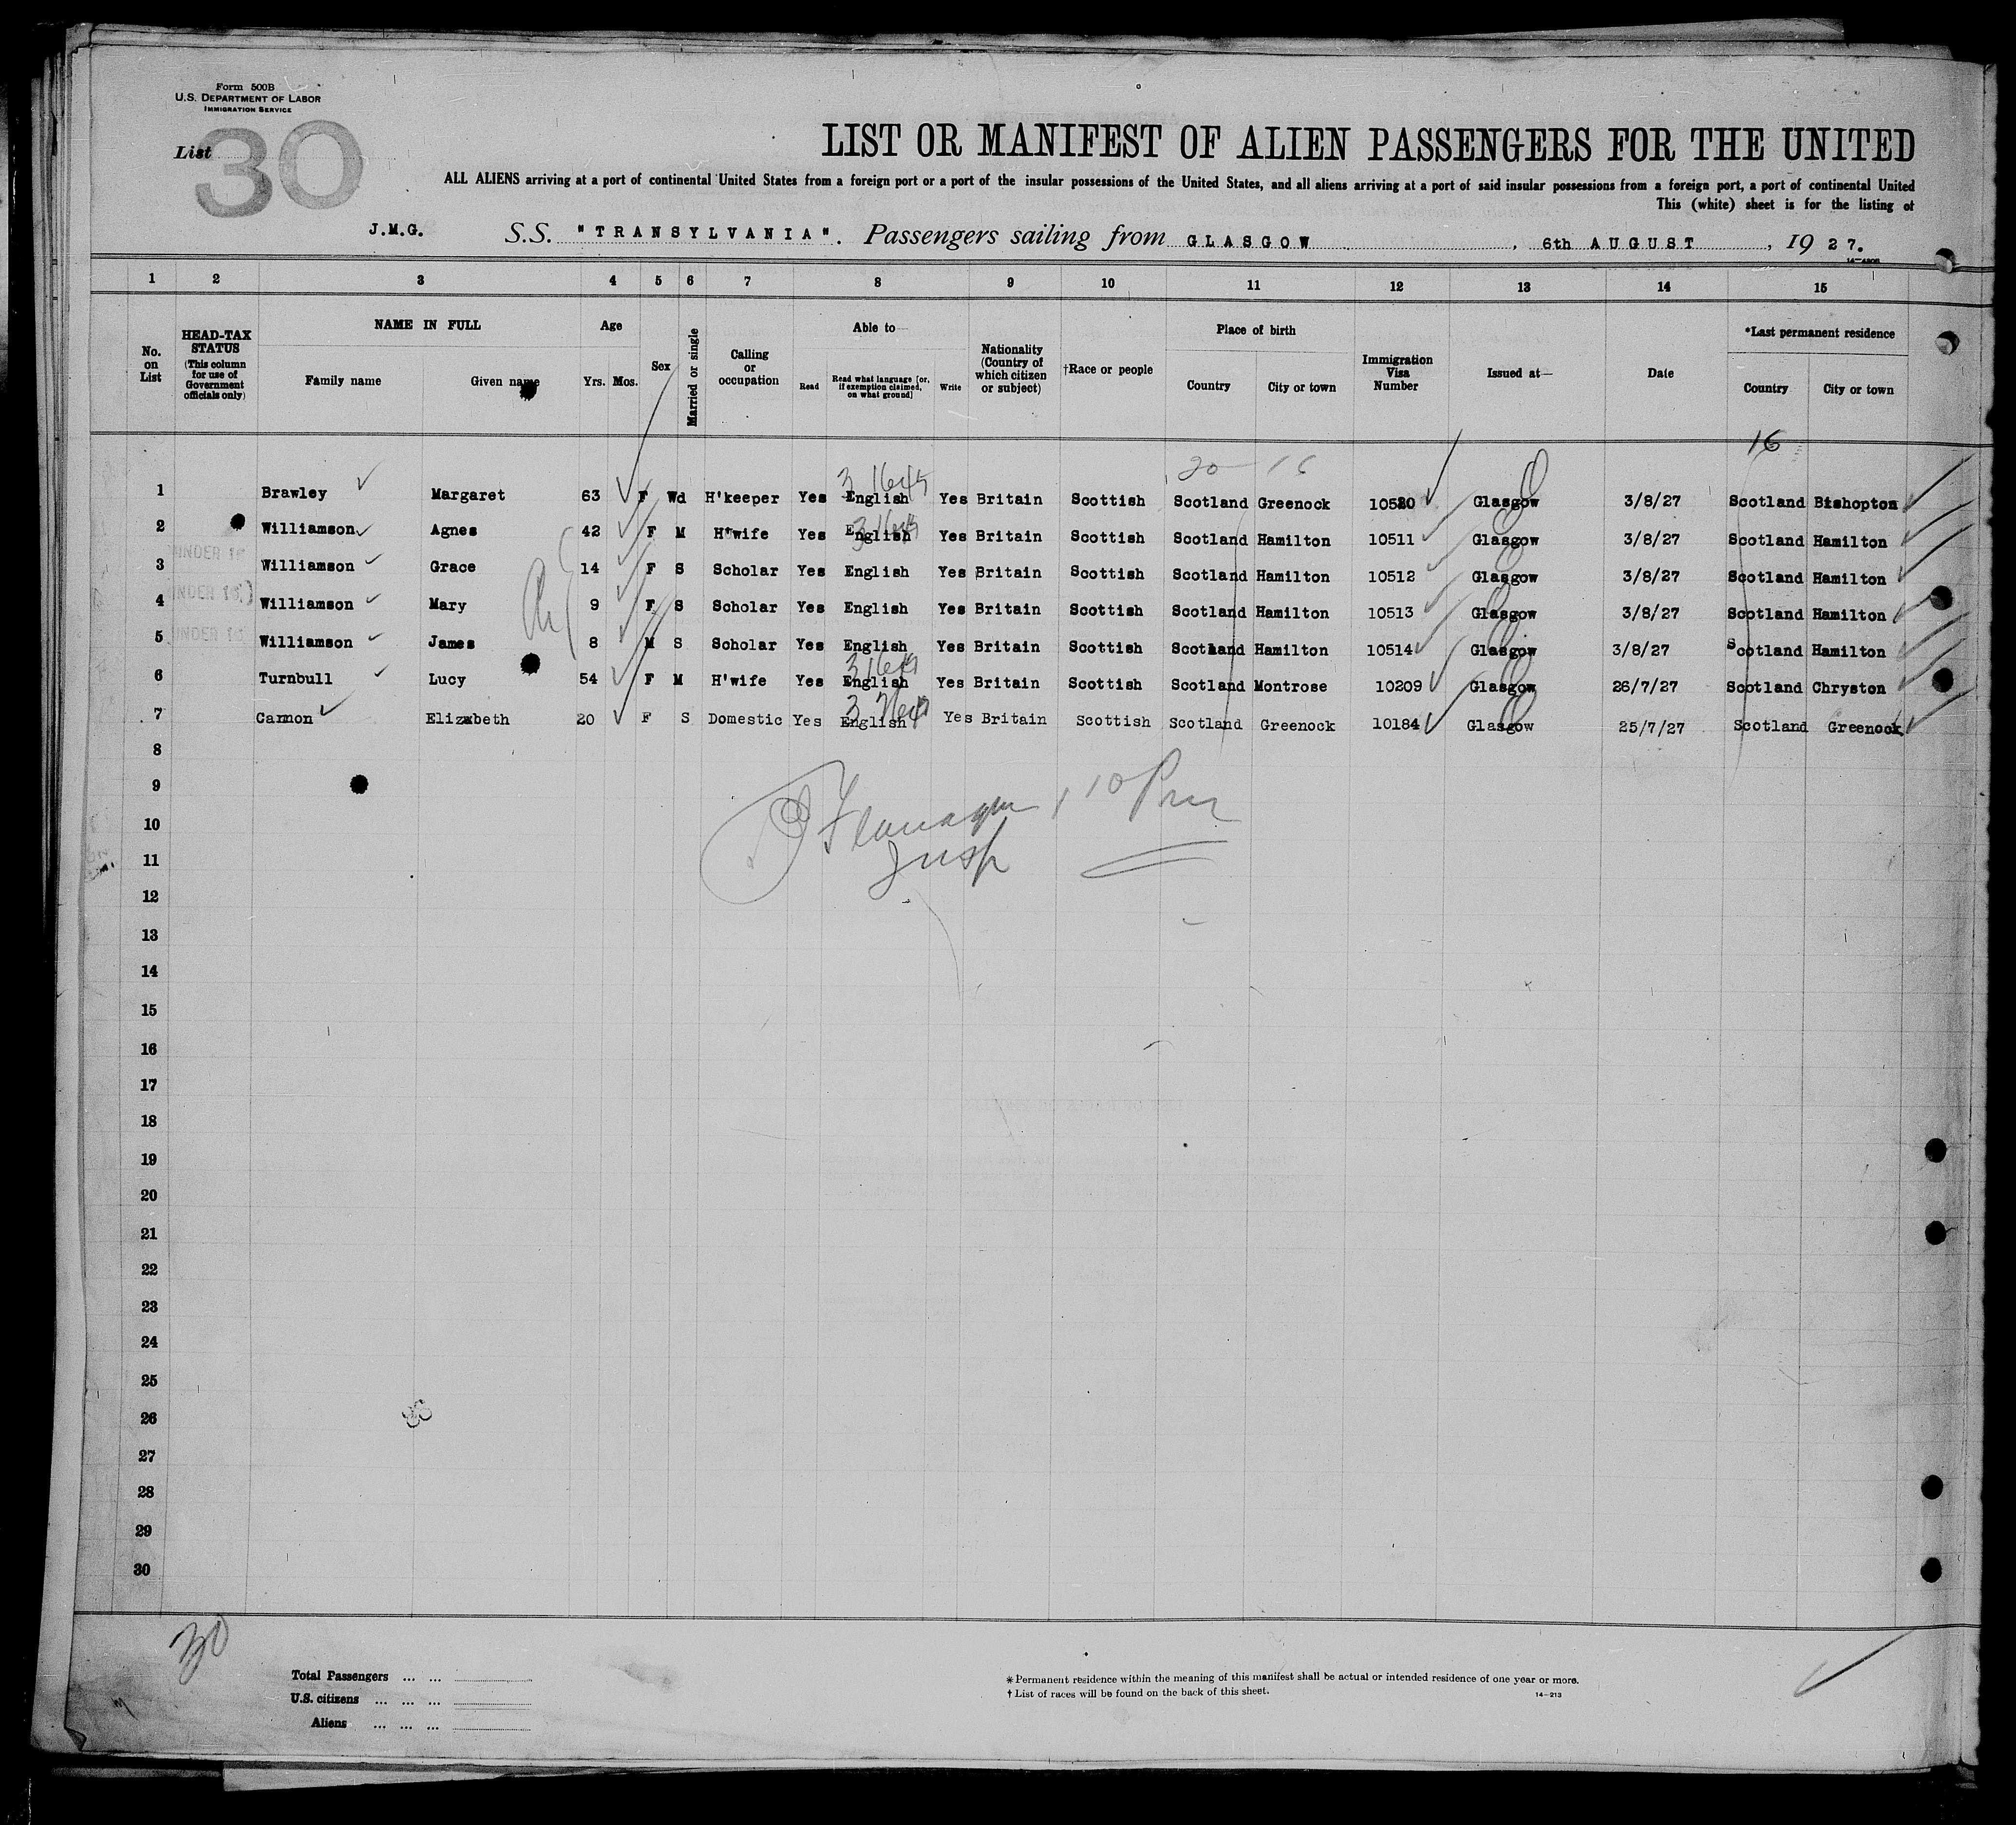 Form 500B
U.S. DEPARTMENT OF LABOR
IMMIGRATION SERVICE
List 30
LIST OR MANIFEST OF ALIEN PASSENGERS FOR THE UNITED
ALL ALIENS arriving at a port of continental United States from a foreign port or a port of the insular possessions of the United States, and all aliens arriving at a port of said insular possessions from a foreign port, a port of continental United
This (white) sheet is for the listing of
J.M.G. S.S. "TRANSYLVANIA". Passengers sailing from GLASGOW, 6th AUGUST, 1927.
1 2 3 4 5 6 7 8 9 10 11 12 13 14 15
No. on List
HEAD-TAX STATUS (This column for use of Government officials only)
NAME IN FULL Family name Given name
Age Yrs. Mos.
Sex
Married or single
Calling or occupation
Able to— Read Read what language [or, if exemption claimed, on what ground] Write
Nationality (Country of which citizen or subject)
†Race or people
Place of birth Country City or town
Immigration Visa Number
Issued at—
Date
*Last permanent residence Country City or town
16
20 - 16
1 Brawley Margaret 63 F Wd H'keeper Yes English Yes Britain Scottish Scotland Greenock 10520 Glasgow 3/8/27 Scotland Bishopton
2 Williamson Agnes 42 F M H'wife Yes English Yes Britain Scottish Scotland Hamilton 10511 Glasgow 3/8/27 Scotland Hamilton
UNDER 16
3 Williamson Grace 14 F S Scholar Yes English Yes Britain Scottish Scotland Hamilton 10512 Glasgow 3/8/27 Scotland Hamilton
UNDER 16
4 Williamson Mary 9 F S Scholar Yes English Yes Britain Scottish Scotland Hamilton 10513 Glasgow 3/8/27 Scotland Hamilton
UNDER 16
5 Williamson James 8 M S Scholar Yes English Yes Britain Scottish Scotland Hamilton 10514 Glasgow 3/8/27 Scotland Hamilton
6 Turnbull Lucy 54 F M H'wife Yes English Yes Britain Scottish Scotland Montrose 10209 Glasgow 26/7/27 Scotland Chryston
7 Canmon Elizabeth 20 F S Domestic Yes English Yes Britain Scottish Scotland Greenock 10184 Glasgow 25/7/27 Scotland Greenock
8
9
Flanagan 110 Pm
10
11
Insp
12
13
14
15
16
17
18
19
20
21
22
23
24
25
26
27
28
29
30
30
Total Passengers ... ...
U.S. citizens ... ... ...
Aliens ... ... ...
* Permanent residence within the meaning of this manifest shall be actual or intended residence of one year or more.
† List of races will be found on the back of this sheet.
14—213